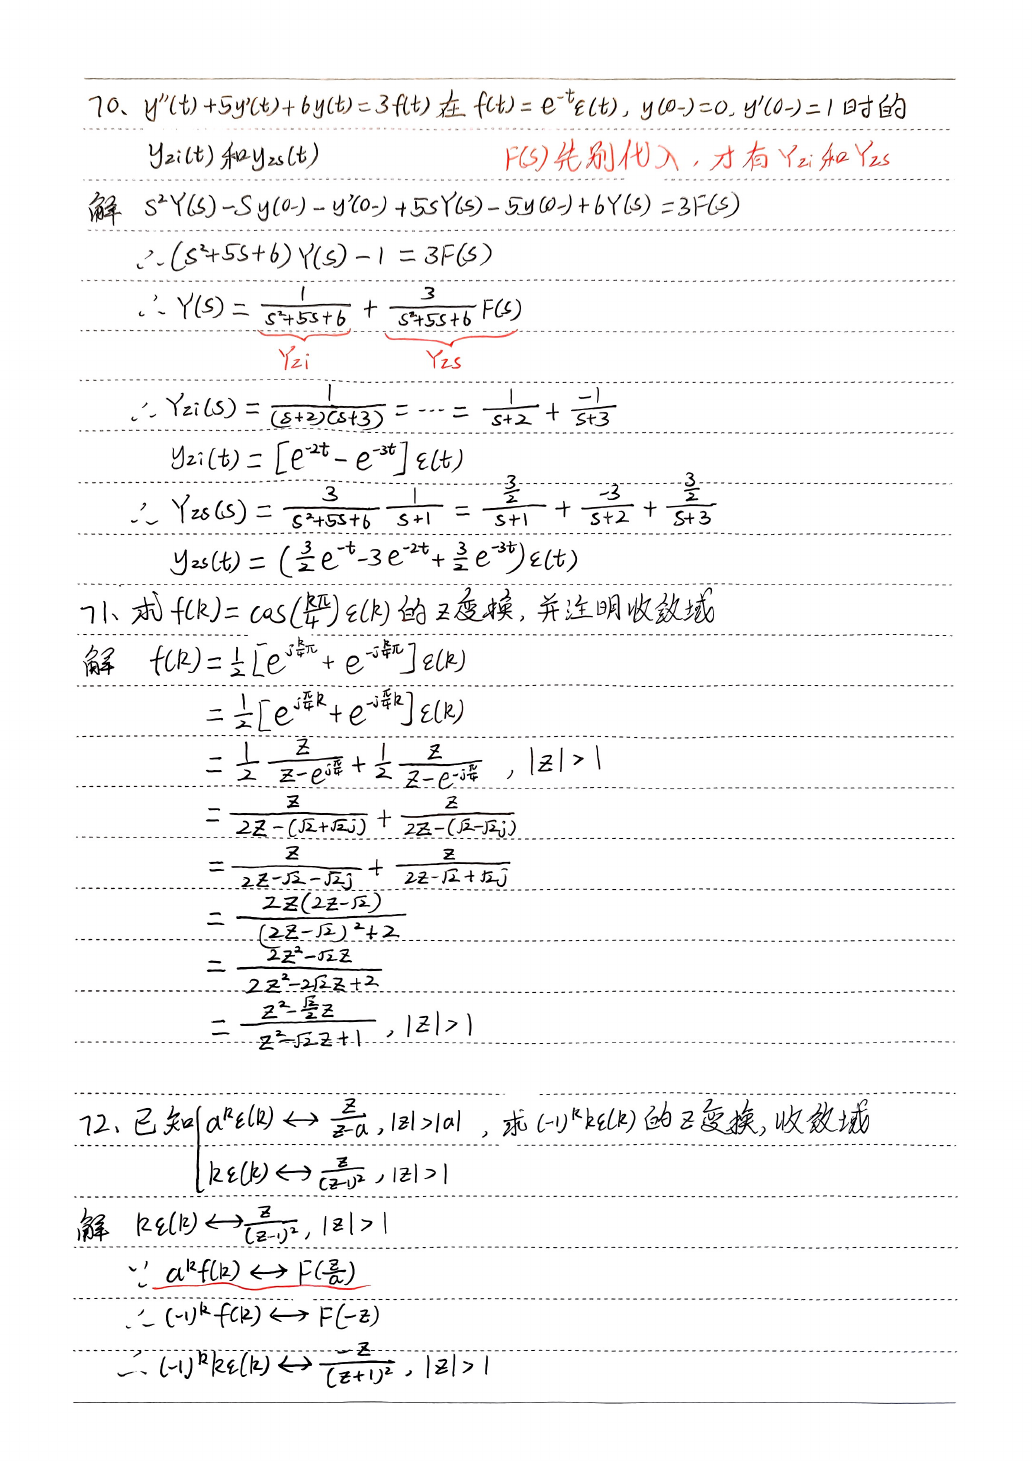 70、y''(t)+5y'(t)+6y(t)=3f(t) 在 f(t)=e^{-t}ε(t), y(0-)=0, y'(0-)=1 时的
yzi(t) 和 yzs(t)
F(s) 先别代入，才有 Yzi 和 Yzs
解 s²Y(s)-sy(0-)-y'(0-)+5sY(s)-5y(0-)+6Y(s)=3F(s)
∴ (s²+5s+6)Y(s)-1=3F(s)
∴ Y(s)= \frac{1}{s²+5s+6} + \frac{3}{s²+5s+6} F(s)
Yzi Yzs
∴ Yzi(s)= \frac{1}{(s+2)(s+3)} = ··· = \frac{1}{s+2} + \frac{-1}{s+3}
yzi(t)=[e^{-2t}-e^{-3t}]ε(t)
∴ Yzs(s)= \frac{3}{s²+5s+6} \frac{1}{s+1} = \frac{\frac{3}{2}}{s+1} + \frac{-3}{s+2} + \frac{\frac{3}{2}}{s+3}
yzs(t)=(\frac{3}{2}e^{-t}-3e^{-2t}+\frac{3}{2}e^{-3t})ε(t)
71、求 f(k)=cos(\frac{kπ}{4})ε(k) 的 z 变换，并注明收敛域
解 f(k)=\frac{1}{2}[e^{j\frac{k}{4}π}+e^{-j\frac{k}{4}π}]ε(k)
=\frac{1}{2}[e^{j\frac{π}{4}k}+e^{-j\frac{π}{4}k}]ε(k)
=\frac{1}{2} \frac{z}{z-e^{j\frac{π}{4}}} + \frac{1}{2} \frac{z}{z-e^{-j\frac{π}{4}}}, |z|>1
= \frac{z}{2z-(√2+√2j)} + \frac{z}{2z-(√2-√2j)}
= \frac{z}{2z-√2-√2j} + \frac{z}{2z-√2+√2j}
= \frac{2z(2z-√2)}{(2z-√2)²+2}
= \frac{2z²-√2z}{2z²-2√2z+2}
= \frac{z²-\frac{√2}{2}z}{z²-√2z+1}, |z|>1
72、已知 { a^kε(k) ↔ \frac{z}{z-a}, |z|>|a| , 求 (-1)^k kε(k) 的 z 变换, 收敛域
kε(k) ↔ \frac{z}{(z-1)²}, |z|>1
解 kε(k) ↔ \frac{z}{(z-1)²}, |z|>1
∵ a^k f(k) ↔ F(\frac{z}{a})
∴ (-1)^k f(k) ↔ F(-z)
∴ (-1)^k kε(k) ↔ \frac{-z}{(z+1)²}, |z|>1